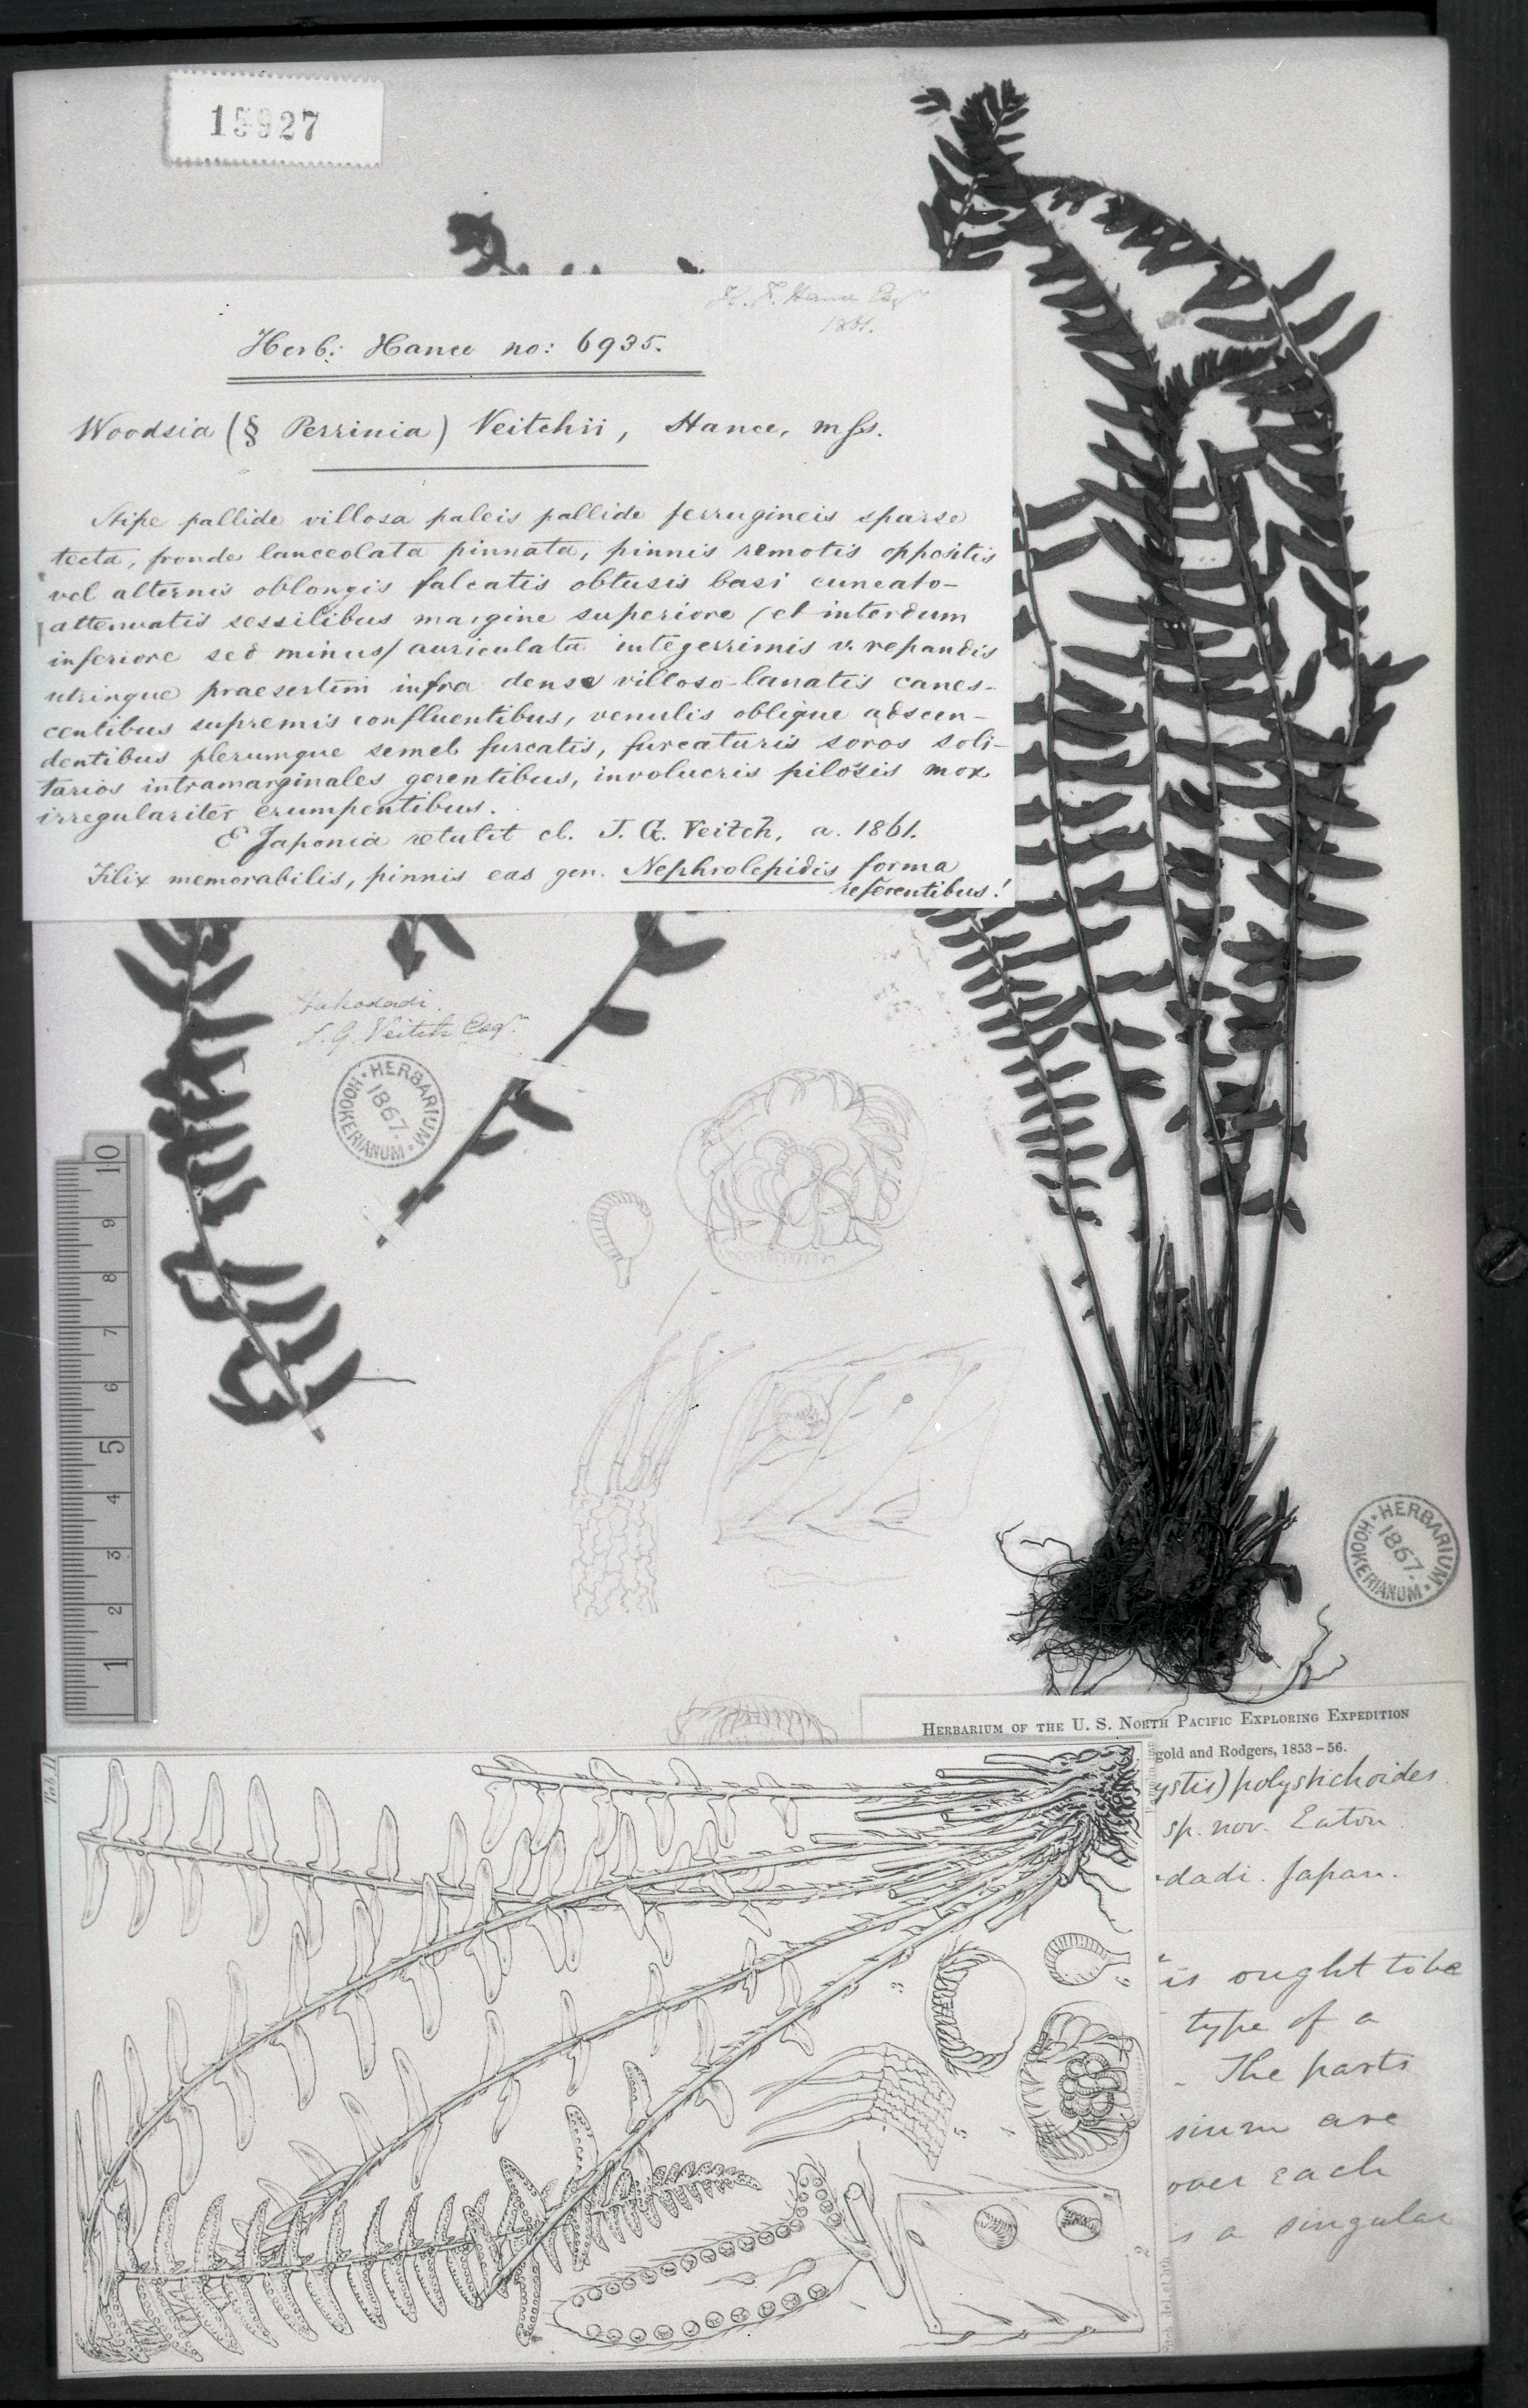 15927
H. F. Hance Esqr
1861.
Herb: Hance no: 6935.
Woodsia (§ Perrinia) Veitchii, Hance, mss.
Stipe pallide villosa paleis pallide ferrugineis sparse
tecta, fronde lanceolata pinnata, pinnis remotis oppositis
vel alternis oblongis falcatis obtusis basi cuneato-
attenuatis sessilibus margine superiore (et interdum
inferiore sed minus) auriculata integerrimis v. repandis
utrinque praesertim infra dense villoso-lanatis canes-
centibus supremis confluentibus, venulis oblique adscen-
dentibus plerumque semel furcatis, furcaturis soros soli-
tarios intramarginales gerentibus, involucris pilosis mox
irregulariter erumpentibus.
E Japonia retulit cl. J. G. Veitch, a. 1861.
Filix memorabilis, pinnis eas gen. Nephrolepidis forma
referentibus!
Hakodadi.
J. G. Veitch Esqr.
HERBARIUM HOOKERIANUM
1867.
10
9
8
7
6
5
4
3
2
1
HERBARIUM HOOKERIANUM
1867.
HERBARIUM OF THE U. S. NORTH PACIFIC EXPLORING EXPEDITION
gold and Rodgers, 1853–56.
ystis) polystichoides
sp. nov. Eaton
dadi. Japan.
is ought to be
type of a
- The parts
sium are
over each
s a singular
Tab. II
3
6
5
1
2